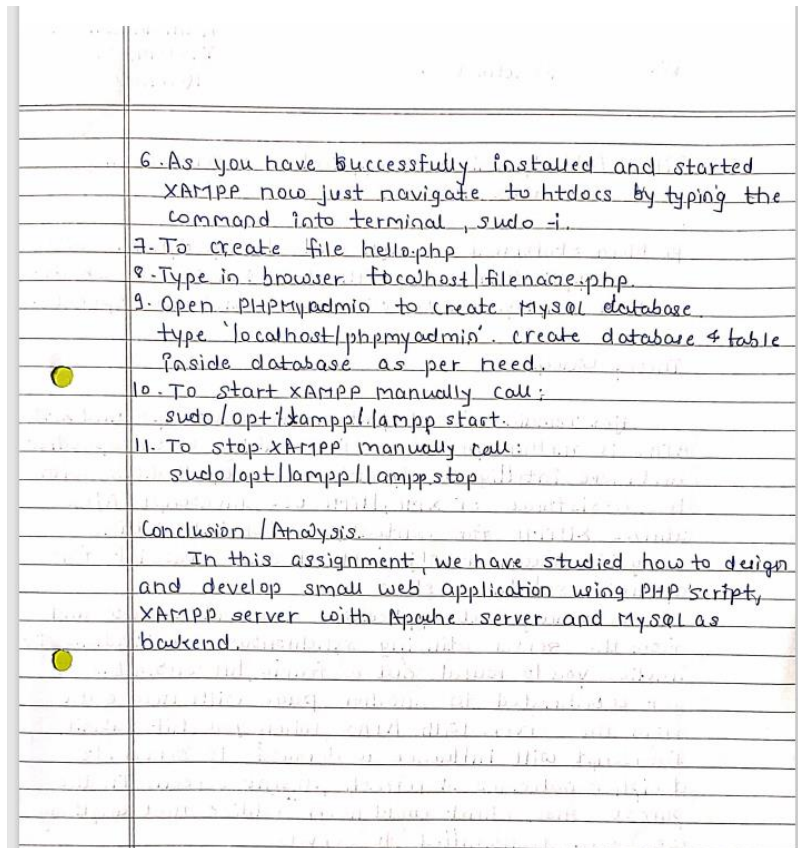 6. As you have successfully installed and started
XAMPP now just navigate to htdocs by typing the
command into terminal, sudo -i.
7. To create file hello.php
8. Type in browser localhost/filename.php.
9. Open PHPMyadmin to create MySQL database
type 'localhost/phpmyadmin'. create database & table
inside database as per need.
10. To start XAMPP manually call:
sudo/opt/lampp/lampp start.
11. To stop XAMPP manually call:
sudo/opt/lampp/lampp stop
Conclusion / Analysis.
In this assignment, we have studied how to design
and develop small web application using PHP script,
XAMPP server with Apache server and MySQL as
backend.